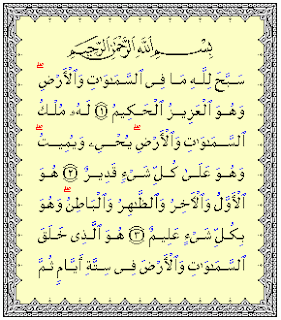 بِسْمِ ٱللَّهِ ٱلرَّحْمَٰنِ ٱلرَّحِيمِ
سَبَّحَ لِلَّهِ مَا فِى ٱلسَّمَٰوَٰتِ وَٱلْأَرْضِۖ
وَهُوَ ٱلْعَزِيزُ ٱلْحَكِيمُ ۝١ لَهُۥ مُلْكُ
ٱلسَّمَٰوَٰتِ وَٱلْأَرْضِۖ يُحْىِۦ وَيُمِيتُۖ
وَهُوَ عَلَىٰ كُلِّ شَىْءٍ قَدِيرٌ ۝٢ هُوَ
ٱلْأَوَّلُ وَٱلْءَاخِرُ وَٱلظَّٰهِرُ وَٱلْبَاطِنُۖ وَهُوَ
بِكُلِّ شَىْءٍ عَلِيمٌ ۝٣ هُوَ ٱلَّذِى خَلَقَ
ٱلسَّمَٰوَٰتِ وَٱلْأَرْضَ فِى سِتَّةِ أَيَّامٍ ثُمَّ